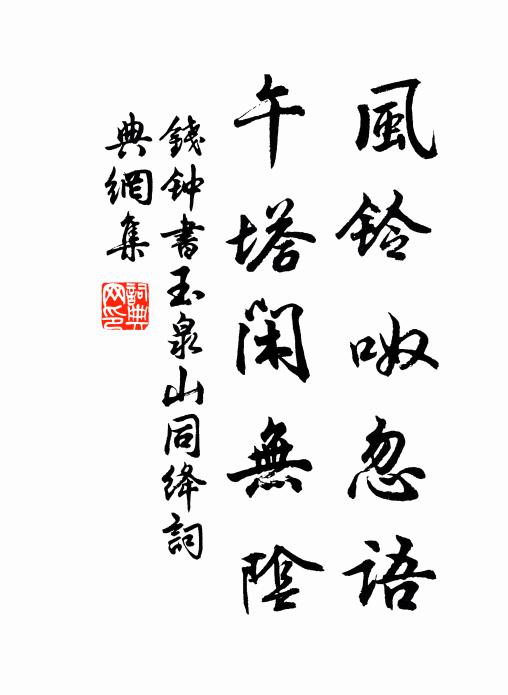 風鈴呶忽語
午塔閑無陰
錢钟書玉泉山同绛詞
典網集
詞典網印